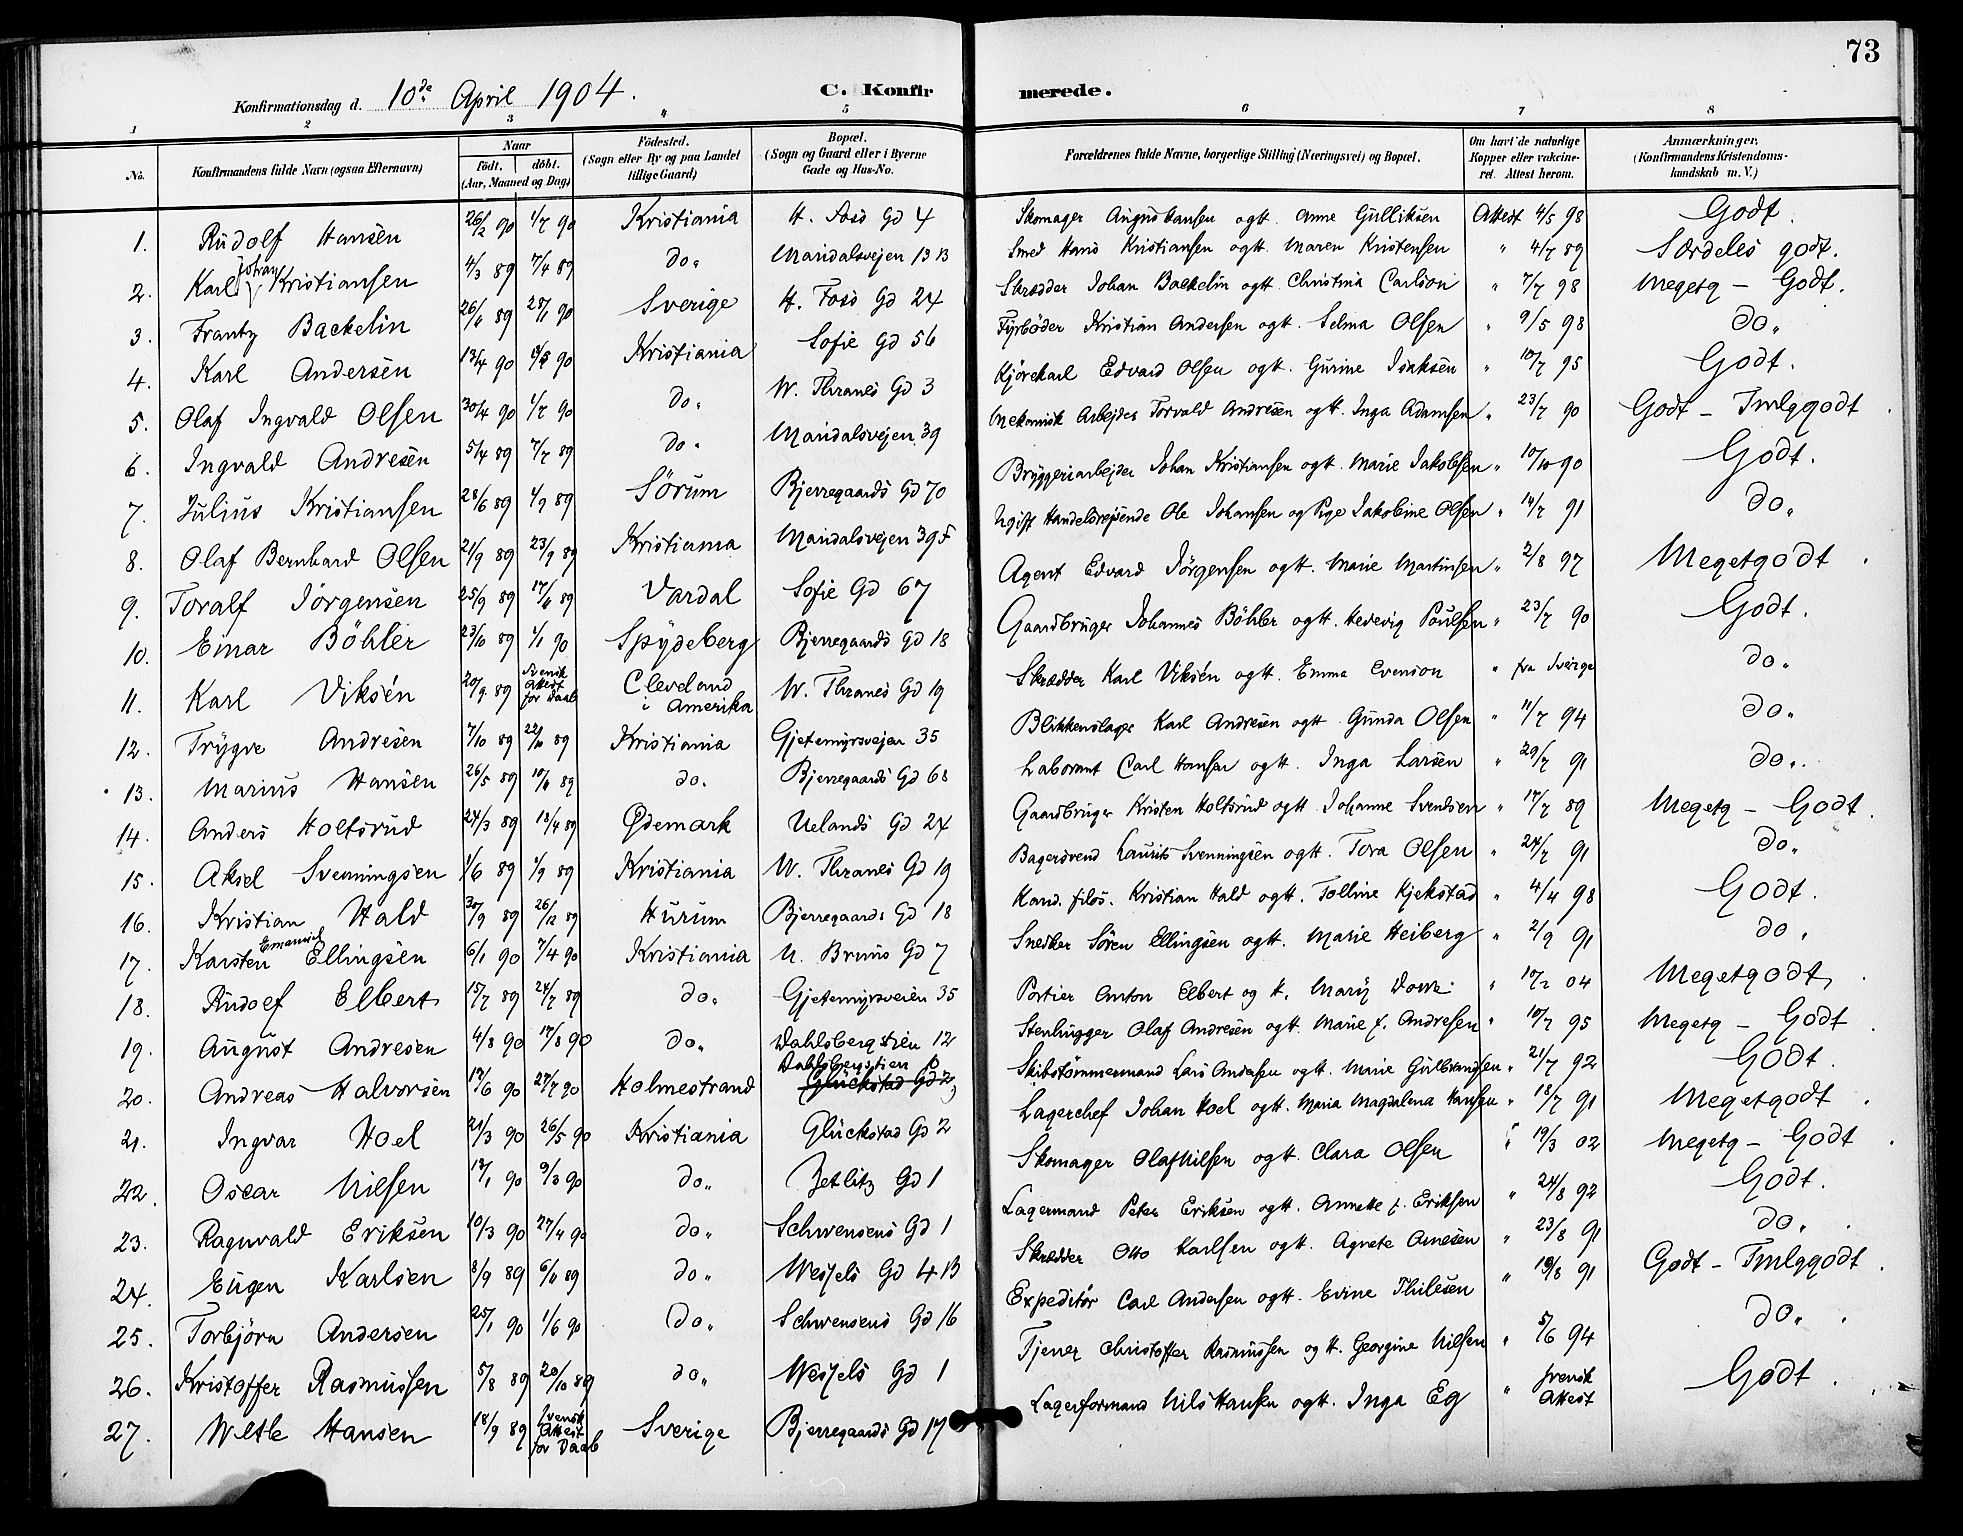 73
Konfirmationsdag d. 10de April 1904.
C. Konfirmerede.
1 2 3 4 5 6 7 8
No. Konfirmandens fulde Navn (ogsaa Efternavn) Naar født. døbt. (Aar, Maaned og Dag) Fødested. (Sogn eller By og paa Landet tillige Gaard) Bopæl. (Sogn og Gaard eller i Byerne Gade og Hus-No. Forældrenes fulde Navne, borgerlige Stilling (Næringsvei) og Bopæl. Om havt de naturlige Kopper eller vakcineret. Attest herom. Anmærkninger. (Konfirmandens Kristendomskundskab m. V.)
1. Rudolf Hansen 26/2 90 1/7 90 Kristiania H. Foss Gd 4 Skomager August Hansen og H. Anne Gulliksen Attest 4/5 98 Godt.
2. Karl Johan Kristiansen 4/3 89 7/4 89 do. Maridalsvejen 13 B Smed Hans Kristiansen og H. Maren Kristensen " 4/7 89 Særdeles godt.
3. Frantz Backelin 26/11 89 Sverige H. Foss Gd 24 Skrædder Johan Backelin og H. Christina Carlson " 7/7 98 Megetg - Godt.
4. Karl Andersen 13/4 90 Kristiania Sofie Gd 56 Fyrbøder Kristian Andersen og H. Selma Olsen " 9/5 98 do.
5. Olaf Ingvald Olsen 30/4 90 1/7 90 do. W. Thranes Gd 3 Kjørekarl Edvard Olsen og H. Gurine Isaksen " 10/7 95 Godt.
6. Ingvald Andresen 5/4 89 7/7 89 do. Maridalsvejen 39 Mekanisk Arbejder Torvald Andresen og H. Inga Adamsen " 23/7 90 Godt - Tmlggodt
7. Julius Kristiansen 28/6 89 1/9 89 Sørum Bjerregaards Gd 70 Bryggeriarbejder Johan Kristiansen og H. Marie Jakobsen " 10/10 90 Godt.
8. Olaf Bernhard Olsen 21/9 89 23/9 89 Kristiania Maridalsvejen 39 F Ugift Handelsrejsende Ole Johansen og Pige Jakobine Olsen " 14/7 91 do.
9. Toralf Jørgensen 25/9 89 17/11 89 Vardal Sofie Gd 67 Agent Edvard Jørgensen og H. Marie Martinsen " 2/8 97 Megetgodt
10. Einar Bøhler 23/10 89 1/1 90 Spydeberg Bjerregaards Gd 18 Gaardbruger Johannes Bøhler og H. Hedevig Poulsen " 23/7 90 Godt.
11. Karl Viksén 20/9 89 Svensk Attest for Daab Cleveland i Amerika W. Thranes Gd 19 Skrædder Karl Viksén og H. Emma Evenson " fra Sverige do.
12. Trygve Andresen 7/10 89 22/10 89 Kristiania Gjetemyrsvejen 35 Blikkenslager Karl Andresen og H. Gunda Olsen " 11/7 94 do.
13. Marius Hansen 26/5 89 10/11 89 do. Bjerregaards Gd 68 Laborant Carl Hansen og H. Inga Larsen " 29/7 91 do.
14. Anders Holtsrud 24/3 89 13/4 89 Ødemark Uelands Gd 24 Gaardbruger Kristen Holtsrud og H. Johanne Svendsen " 17/7 89 Megetg - Godt
15. Aksel Svenningsen 1/6 89 1/9 89 Kristiania W. Thranes Gd 19 Bagersvend Laurits Svenningsen og H. Tora Olsen " 24/7 91 do.
16. Kristian Hald 30/9 89 26/12 89 Hurum Bjerregaards Gd 18 Kand. filos. Kristian Hald og H. Tolline Kjekstad " 4/4 98 Godt.
17. Karsten Emanuel Ellingsen 6/1 90 7/4 90 Kristiania U. Bruns Gd 7 Snedker Søren Ellingsen og H. Marie Heiberg " 2/9 91 do.
18. Rudolf Elbert 15/7 89 24/7 89 do. Gjetemyrsveien 35 Portier Anton Elbert og H. Mary " 10/2 04 Megetgodt
19. August Andresen 4/8 90 17/8 90 do. Dahlsbergstien 12 Stenhugger Olaf Andresen og H. Marie f. Andresen " 10/7 95 Megetg - Godt
20. Andreas Halvorsen 17/6 90 27/7 90 Holmestrand Dahlsbergstien Glückstad Gd 2 Skibstømmermand Lars Andersen og H. Marie Gulbrandsen " 21/7 92 Godt.
21. Ingvar Hoel 21/3 90 26/5 90 Kristiania Glückstad Gd 2 Lagerchef Johan Hoel og H. Maria Magdalena Hansen " 18/7 91 Megetgodt
22. Oscar Nilsen 17/1 90 9/3 90 do. Zetlitz Gd 1 Skomager Olaf Nilsen og H. Clara Olsen " 19/3 02 Megetg - Godt
23. Ragnvald Eriksen 10/3 90 27/4 90 do. Schwensens Gd 1 Lagermand Peter Eriksen og H. Annette f. Eriksen " 24/8 92 Godt.
24. Eugen Karlsen 8/9 89 6/11 89 do. Wessels Gd 4 B Skrædder Otto Karlsen og H. Agnete Arnesen " 23/8 91 do.
25. Torbjørn Andersen 25/1 90 1/6 90 do. Schwensens Gd 16 Expeditør Carl Andersen og H. Evine Thilesen " 19/8 91 Godt - Tmlggodt
26. Kristoffer Rasmussen 5/8 89 20/10 89 do. Wessels Gd 1 Tjener Christoffer Rasmussen og H. Georgine Nilsen " 5/6 94 do.
27. Hansen 18/9 89 Svensk Attest for Daab Sverige Bjerregaards Gd 17 Lagerformand Nils Hansen og H. Inga Eg " svensk Attest Godt